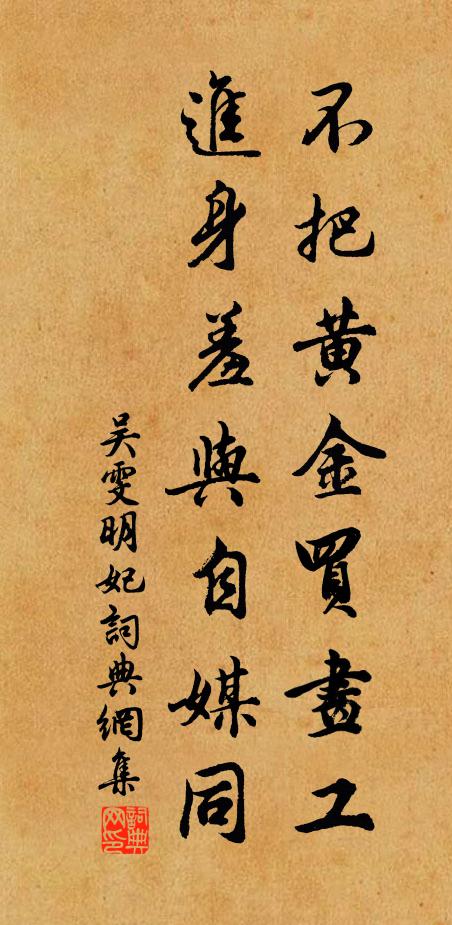 不把黄金買畫工
進身羞與自媒同
吴雯明妃詞典網集
詞典網印